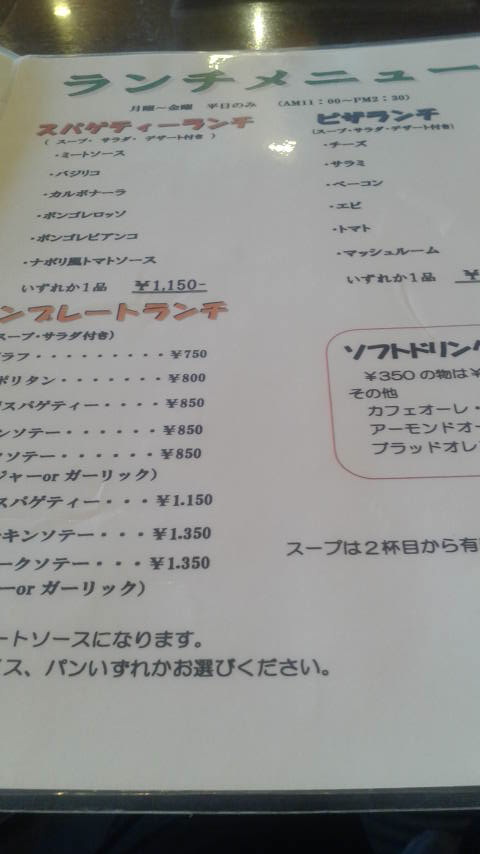 ランチメニュー
月曜〜金曜 平日のみ (AM11:00〜PM2:30)
スパゲティーランチ
( スープ・ サラダ・ デザート付き )
・ミートソース
・バジリコ
・カルボナーラ
・ボンゴレロッソ
・ボンゴレビアンコ
・ナポリ風トマトソース
いずれか1品 ¥1,150-
ピザランチ
(スープ・サラダ・デザート付き)
・チーズ
・サラミ
・ベーコン
・エビ
・トマト
・マッシュルーム
いずれか1品 ¥
ンプレートランチ
スープ・サラダ付き)
ラフ・・・・・・・・・¥750
ポリタン・・・・・・・¥800
スパゲティー・・・・¥850
ンソテー・・・・・・¥850
ソテー・・・・・・¥850
ジャーor ガーリック)
スパゲティー・・・¥1.150
キンソテー・・・¥1.350
ークソテー・・・¥1.350
ーor ガーリック)
ートソースになります。
イス、パンいずれかお選びください。
ソフトドリンク
¥350 の物は¥
その他
カフェオーレ・
アーモンドオー
ブラッドオレ
スープは2杯目から有